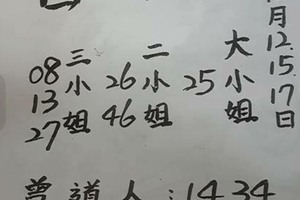 月12.15.17日
大小姐
25
二小姐
26
46
三小姐
08
13
27
曾道人:1434